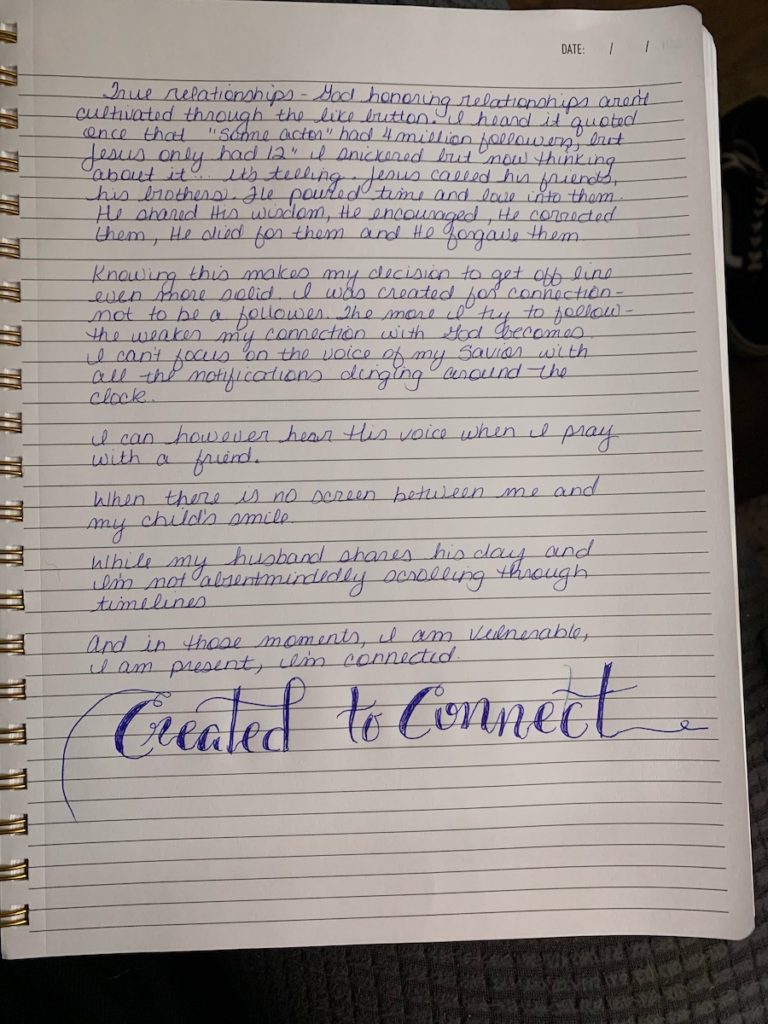 DATE: / /
True relationships - God honoring relationships aren't
cultivated through the like button. I heard it quoted
once that "some actor" had 4 million followers, but
Jesus only had 12" I snickered but now thinking
about it... it's telling. Jesus called his friends,
his brothers. He poured time and love into them.
He shared His wisdom, He encouraged, He corrected
them, He died for them and He forgave them
Knowing this makes my decision to get off line
even more solid. I was created for connection -
not to be a follower. The more I try to follow -
the weaker my connection with God becomes.
I can't focus on the voice of my Savior with
all the notifications dinging around the
clock.
I can however hear His voice when I pray
with a friend.
When there is no screen between me and
my child's smile.
While my husband shares his day and
I'm not absentmindedly scrolling through
timelines
And in those moments, I am vulnerable,
I am present, I'm connected.
Created to Connect